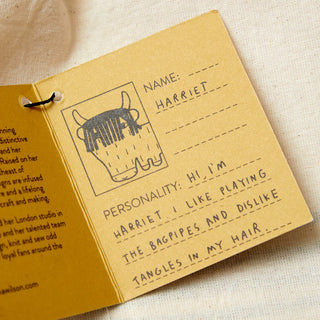 nning,
distinctive
and her
Raised on her
heast of
igns are infused
re and a lifelong
craft and making.
d her London studio in
and her talented team
gn, knit and sew odd
loyal fans around the
awilson.com
NAME:
HARRIET
PERSONALITY: HI, I'M
HARRIET I LIKE PLAYING
THE BAGPIPES AND DISLIKE
TANGLES IN MY HAIR